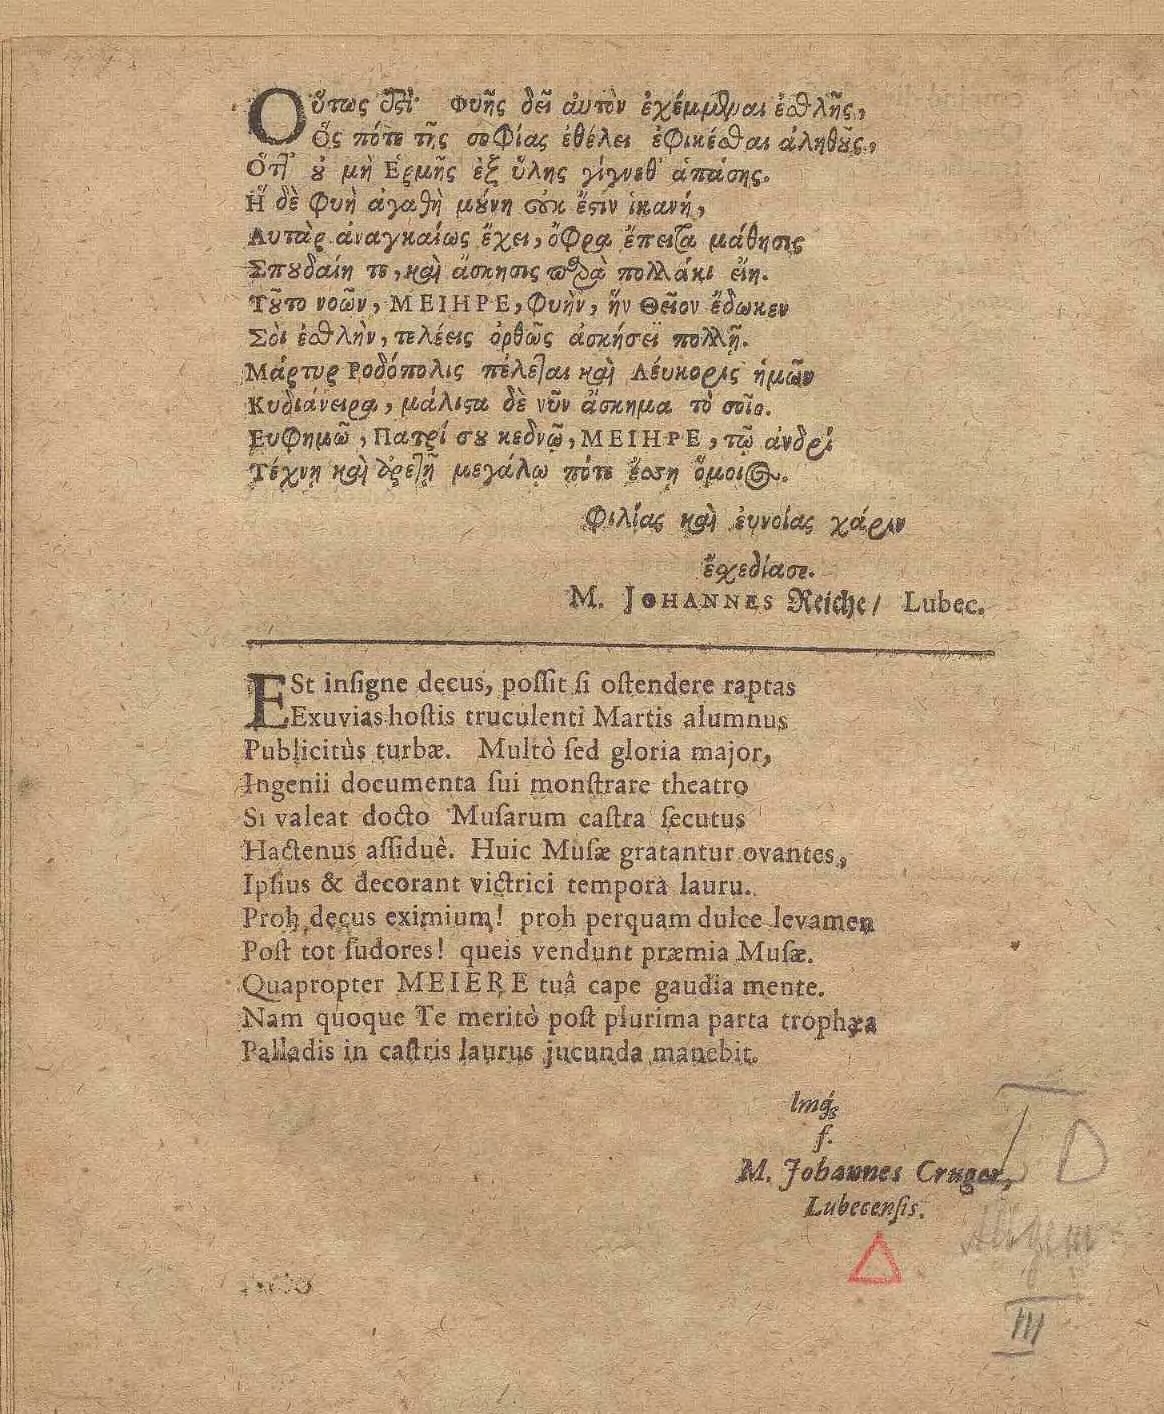 Οὕτως ἐστί· Φυῆς δεῖ αὐτὸν ἐχέμμεναι ἐσθλῆς,
Ὅς πότε τῆς σοφίας ἐθέλει ἐφικέσθαι ἀληθοῦς,
Ὅτι οὐ μὴ Ἑρμῆς ἐξ ὕλης γίγνεθ' ἁπάσης.
Ἡ δὲ Φυὴ ἀγαθὴ μούνη οὐκ ἔστιν ἱκανή,
Αὐτὰρ ἀναγκαίως ἔχει, ὄφρα ἔπειτα μάθησις
Σπουδαίη τε, καὶ ἄσκησις παρὰ πολλάκι εἴη.
Τοῦτο νοῶν, ΜΕΙΗΡΕ, Φυὴν, ἥν Θεῖον ἔδωκεν
Σοὶ ἐσθλὴν, τελέεις ὀρθῶς ἀσκήσεϊ πολλῇ.
Μάρτυρ Ροδόπολις πέλεται καὶ Λεύκορις ἡμῶν
Κυδιάνειρα, μάλιστα δὲ νῦν ἄσκημα τὸ σοῖο.
Εὐφημῶ, Πατρί σου κεδνῷ, ΜΕΙΗΡΕ, τῷ ἀνδρὶ
Τέχνῃ καὶ ἀρετῇ μεγάλῳ πότε ἔσσῃ ὅμοιος.
Φιλίας καὶ ἐυνοίας χάριν
ἐσχεδίασε.
M. JOHANNES Reiche / Lubec.
ESt inſigne decus, poſſit ſi oſtendere raptas
Exuvias hoſtis truculenti Martis alumnus
Publicitùs turbæ. Multò ſed gloria major,
Ingenii documenta ſui monſtrare theatro
Si valeat docto Muſarum caſtra ſecutus
Hactenus aſſiduè. Huic Muſæ gratantur ovantes,
Ipſius & decorant victrici tempora lauru.
Proh decus eximium! proh perquam dulce levamen
Poſt tot ſudores! queis vendunt præmia Muſæ.
Quapropter MEIERE tuâ cape gaudia mente.
Nam quoque Te meritò poſt plurima parta trophæa
Palladis in caſtris laurus jucunda manebit.
lmq́;
f.
M. Johannes Cruger,
Lubecenſis.
D
Allgem
III